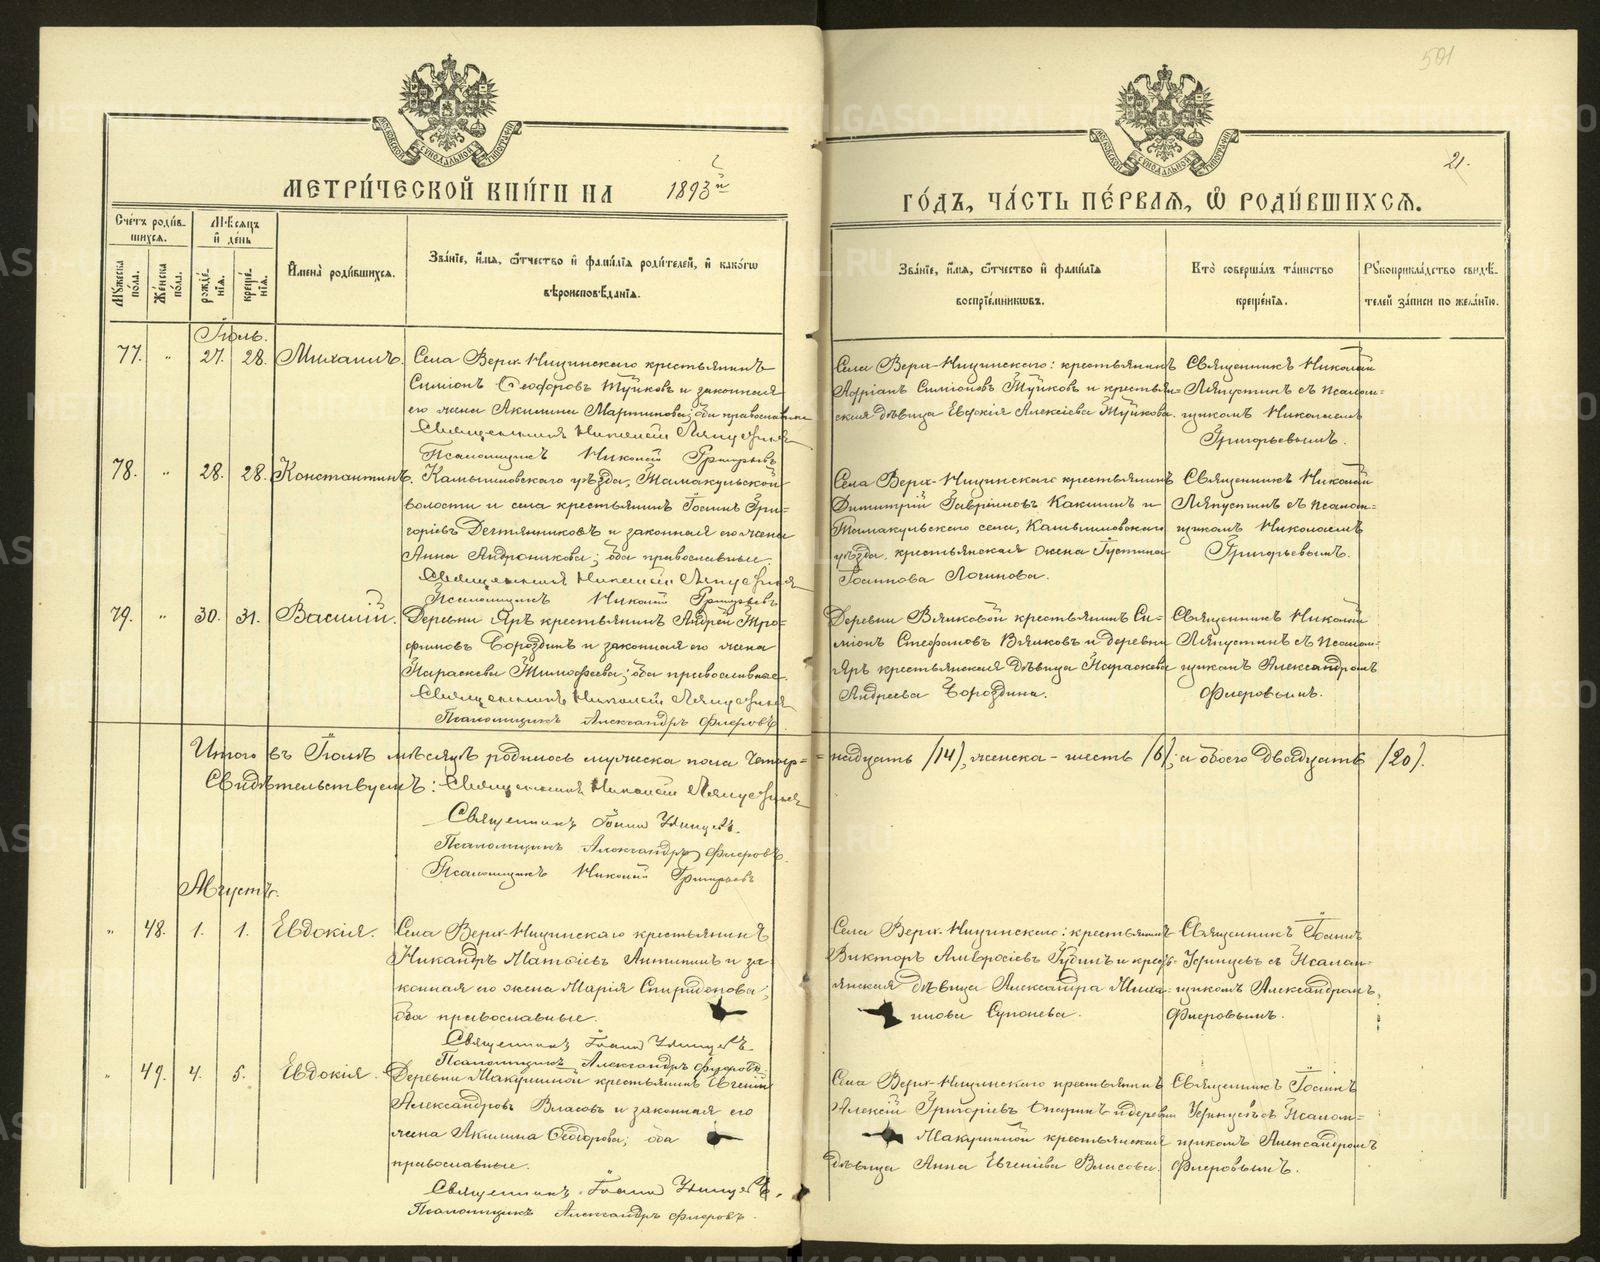 501
21.
МЕТРИ́ЧЕСКОЙ КНИ́ГИ НА 1893й
ГО́ДЪ, ЧА́СТЬ ПЕ́РВАЯ, Ѡ РОДИ́ВШИХСЯ.
Сче́тъ роди́в-
шихся.
Мѣ́сяцъ
и҆ де́нь
Му́жеска
по́ла.
Же́нска
по́ла.
рожде́-
нія.
креще́-
нія.
И҆мена̀ роди́вшихся.
Зва́ніе, и҆́мя, ѻ҆́тчество и҆ фами́лія роди́телей, и҆ како́гѡ
вѣроисповѣ́данія.
Зва́ніе, и҆́мя, ѻ҆́тчество и҆ фами́лія
воспріе́мниковъ.
Кто̀ соверша́лъ та́инство
креще́нія.
Рꙋкоприкла́дство свидѣ́-
телей за́писи по жела́нію.
Іюль.
77. " 27. 28. Михаилъ.
Села Верх-Ницинскаго крестьянинъ
Симіонъ Ѳеодоровъ Туйковъ и законная
его жена Акилина Мартинова; оба православные
Священникъ Николай Ляпустинъ
Псаломщикъ Николай Григорьевъ
Села Верх-Ницинскаго: крестьянинъ
Адріанъ Симіоновъ Туйковъ и крестьян-
ская дѣвица Евдокія Алексіева Туйкова.
Священникъ Николай
Ляпустинъ съ псалом-
щикомъ Николаемъ
Григорьевымъ.
78. " 28. 28. Константинъ.
Камышловскаго уѣзда, Тамакульской
волости и села крестьянинъ Іоаннъ Гри-
горіевъ Дегтянниковъ и законная его жена
Анна Андроникова; оба православные.
Священникъ Николай Ляпустинъ
Псаломщикъ Николай Григорьевъ
Села Верх-Ницинскаго крестьянинъ
Димитрій Гавріиловъ Какшинъ и
Тамакульскаго села, Камышловскаго
уѣзда, крестьянская жена Іустина
Іоаннова Логинова.
Священникъ Николай
Ляпустинъ съ псалом-
щикомъ Николаемъ
Григорьевымъ.
79. " 30. 31. Василій.
Деревни Яръ крестьянинъ Андрей Тро-
фимовъ Бороздинъ и законная его жена
Параскева Тимофеева; оба православные.
Священникъ Николай Ляпустинъ
Псаломщикъ Александръ Флеровъ.
Деревни Вяцковой крестьянинъ Си-
міонъ Стефановъ Вяцковъ и деревни
Яръ крестьянская дѣвица Параскева
Андреева Бороздина.
Священникъ Николай
Ляпустинъ съ псалом-
щикомъ Александромъ
Флеровымъ.
Итого въ Іюлѣ мѣсяцѣ родилось мужеска пола четыр-
надцать /14/, женска - шесть /6/, а обоего двадцать /20/.
Свидѣтельствуемъ: Священникъ Николай Ляпустинъ
Священникъ Іоаннъ Удинцевъ.
Псаломщикъ Александръ Флеровъ.
Псаломщикъ Николай Григорьевъ
Августъ.
" 48. 1. 1. Евдокія.
Села Верх-Ницинскаго крестьянинъ
Никандръ Матѳіевъ Антипинъ и за-
конная его жена Марія Спиридонова;
оба православные.
Священникъ Іоаннъ Удинцевъ.
Псаломщикъ Александръ Флеровъ.
Села Верх-Ницинскаго: крестьянинъ
Викторъ Амвросіевъ Губинъ и кресть-
янская дѣвица Александра Миха-
илова Супонева.
Священникъ Іоаннъ
Удинцевъ съ Псалом-
щикомъ Александромъ
Флеровымъ.
" 49. 4. 5. Евдокія.
Деревни Макушиной крестьянинъ Евгеній
Александровъ Власовъ и законная его
жена Акилина Ѳеодорова; оба
православные.
Священникъ Іоаннъ Удинцевъ.
Псаломщикъ Александръ Флеровъ.
Села Верх-Ницинскаго крестьянинъ
Алексій Григоріевъ Опаринъ и деревни
Макушиной крестьянская
дѣвица Анна Евгеніева Власова.
Священникъ Іоаннъ
Удинцевъ съ Псалом-
щикомъ Александромъ
Флеровымъ.
METRIKI.GASO-URAL.RU